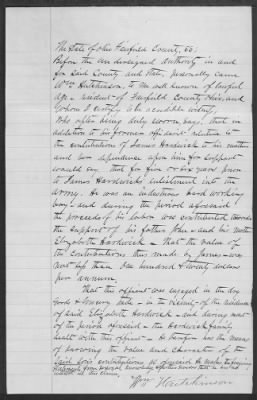 The State of Ohio Fairfield County, SS:
Before the undersigned authority in and
for said County and State, personally came
Wm Hutchinson, to me well known of lawful
age - resident of Fairfield County Ohio, and
whom I certify to be a credible witness,
Who after being duly sworn says, that in
addition to his former affidavit relative to
the contributions of James Hardwick to his mother
and her dependence upon him for support
would say that for five or six years prior
to James Hardwick's enlistment in the
army. He was an industrious hard working
boy - and during the period aforesaid
the proceeds of his labor was contributed towards
the support of his father John - and his Mother
Elizabeth Hardwick - That the value of
the contributions thus made by James - was
not less than One hundred & twenty dollars
per annum.
That this affiant was engaged in the dry
Goods & Grocery trade - in the vicinity of the residence
of said Elizabeth Hardwick - and during most
of the period aforesaid - the Hardwick family
dealt with this affiant - He therefore has the means
of knowing the value and character of the
said son's contributions as aforesaid He makes the foregoing
statements from personal knowledge
interest in this claim,
Wm Hutchinson